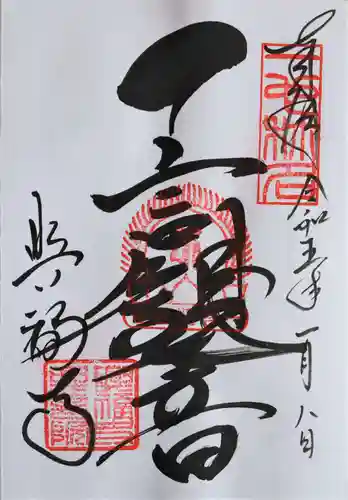 奉拝
令和五年一月八日
一言観音
興福寺